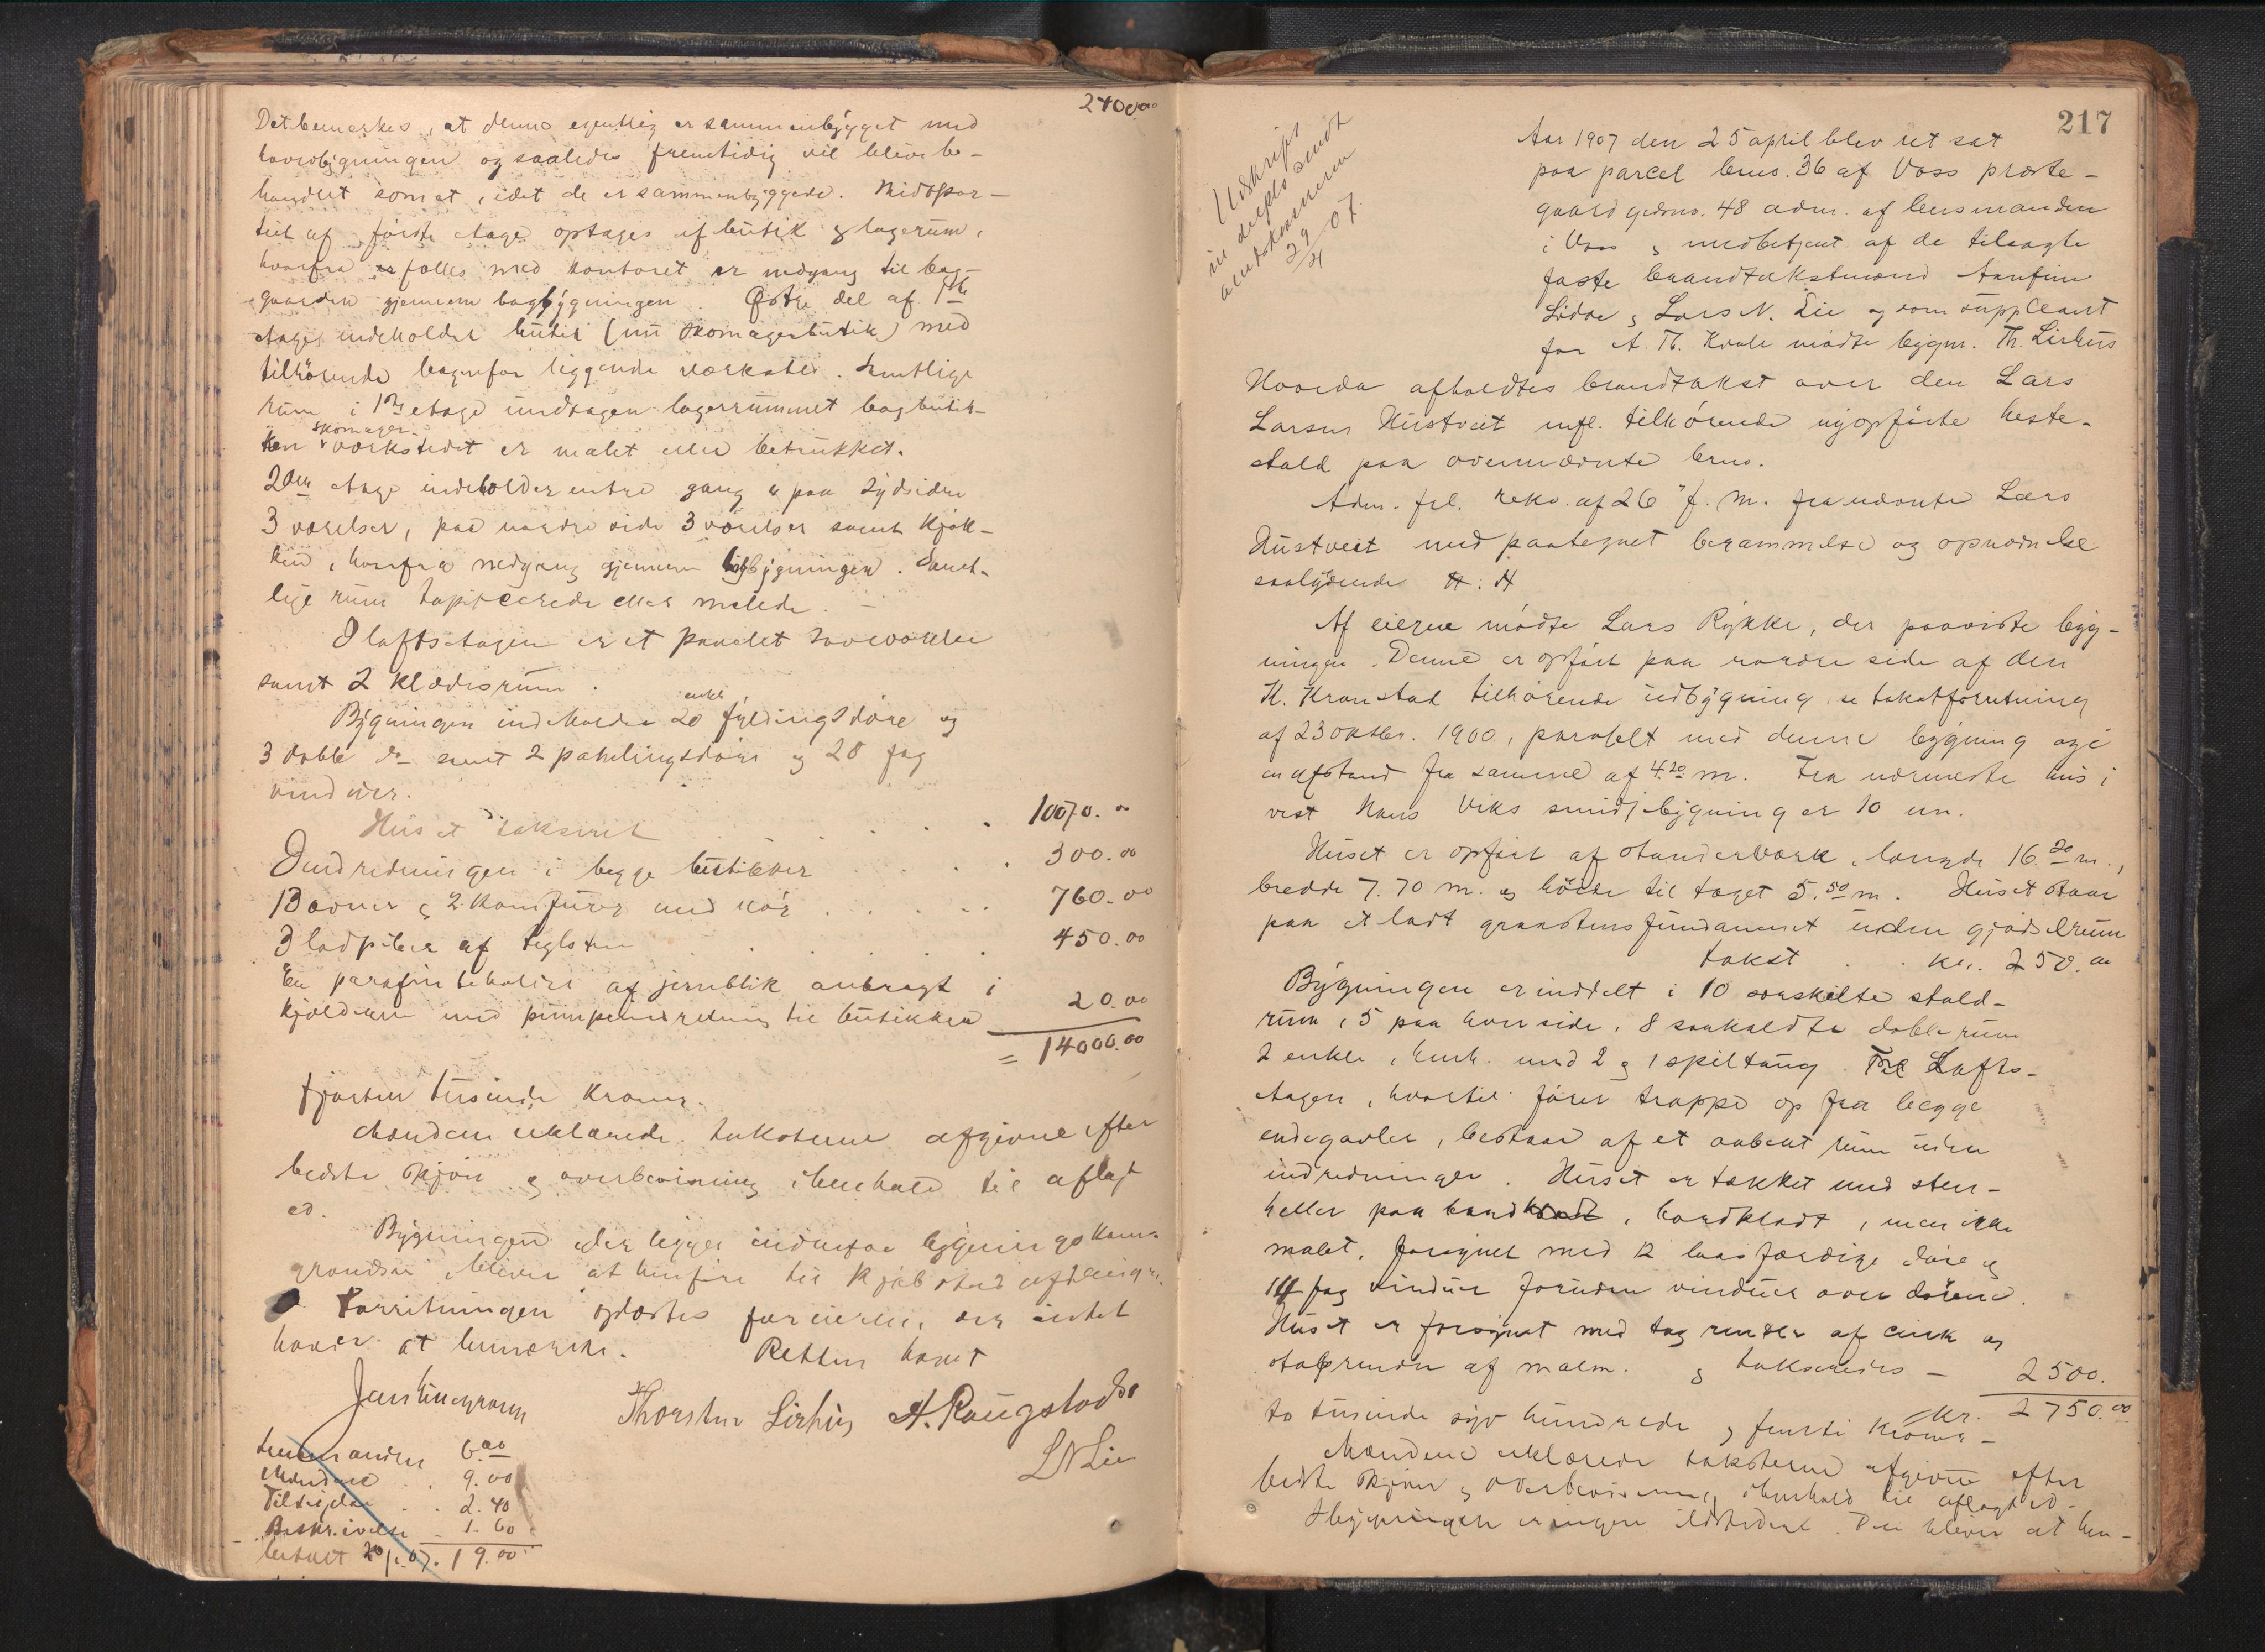 2400.00
Det bemærkes, at denne egentlig er sammenbygget med
hovedbygningen og saaledes fremtidig vil blive be-
handlet som et, idet de er sammenbyggede. Midtpar-
tiet af første etage optages af butik & lagerum,
hvorfra er fælles med kontoret er nedgang til bag-
gaarden gjennem bagbygningen. Østre del af 1ste
etage indeholder butik (nu skomagerbutik) med
tilhørende bagenfor liggende værksted. Samtlige
rum i 1ste etage undtagen lagerrummet bag butik-
ken & skomager værkstedet er malet eller betrukket.
2den etage indeholder entre gang & paa sydsiden
3 værelser, paa nordre side 3 værelser samt kjøk-
ken, hvorfra nedgang gjennem bagbygningen. Samt-
lige rum tapiserede eller malede. -
I loftsetagen er et panelet soveværelse
samt 2 klædesrum.
Bygningen indeholder 20 enkle fyldingsdøre og
3 doble do samt 2 panelingsdøre og 28 fag
vinduer.
Huset takseret . . . . . 10070.00
Indredningen i begge butikker . . . 300.00
13 ovner & 2 komfurer med rør . . . . 760.00
3 ladpiber af teglsten . . . . 450.00
En parafinbeholder af jernblik anbragt i
kjelderen med pumpeindretning til butikken 20.00
= 14000.00
fjorten tusinde kroner.
Mændene erklærede taksterne afgivne efter
bedste skjøn & overbevisning i henhold til aflagt
ed.
Bygningen der ligger indenfor bygningskom.
grændse bliver at henføre til kjøbstad afdeling.
Forretningen oplæstes for eieren, der intet
havde at bemærke. Retten hævet
Thorstein Lirhus A. Rougstad
L N Lie
Lensmanden 6.00
Mændene . . 9.00
Tilsigelse . . 2.40
Beskrivelse - 1.60
betalt 19.00
217
Udskrift
sendt
29/4 07.
Aar 1907 den 25 april blev ret sat
paa parcel brno. 36 af Voss præste-
gaard gardsno. 48 adm. af lensmanden
i Voss & medbetjent af de tilsagte
faste brandtakstmænd Arnfinn
Lidve & Lars N. Lie og som suppleant
for A. Th. Kvale mødte bygm. Th. Lirhus
Hvorda afholdtes brandtakst over den Lars
Larsen Hustveit mfl. tilhørende nyopførte heste-
stald paa ovennævnte brno.
Adm. frl. rekv. af 26 f. m. fra nævnte Lars
Hustveit med paategnet berammelse og opnævnelse
saalydende #. #
Af eierne mødte Lars Rykke, der paaviste byg-
ningen. Denne er opført paa nordre side af den
H. Kronstad tilhørende udbygning, se takstforretning
af 23 oktbr. 1900, paralelt med denne bygning og i
en afstand fra samme af 4.20 m. Fra nærmeste hus i
vest Hans Viks smidjebygning er 10 m.
Huset er opført af standerværk, længde 16.20 m.,
bredde 7.70 m. og høide til taget 5.50 m. Huset staar
paa et ladt graastensfundament uden gjødselrum
takst . . kr. 250.00
Bygningen er inddelt i 10 særskilte stald-
rum, 5 paa hver side, 8 saakaldte doble rum
2 enkle, henh. med 2 & 1 spiltaug. Til Lofts-
etagen, hvortil fører trappe op fra begge
endegavler, bestaar af et aabent rum uden
indredninger. Huset er tækket med sten-
heller paa bord, bordklædt, men ikke
malet, forsynet med 12 laasfærdige døre &
14 fag vinduer foruden vinduer over dørene.
Huset er forsynet med tag render af cink og
staldrender af malm. & takseredes - 2500.
kr. 2750.00
to tusinde syv hundrede & femti kroner -
Mændene erklærede taksterne afgivne efter
bedste skjøn & overbevisning i henhold til aflagt ed.
I bygningen er ingen ildsteder. Den bliver at hen-